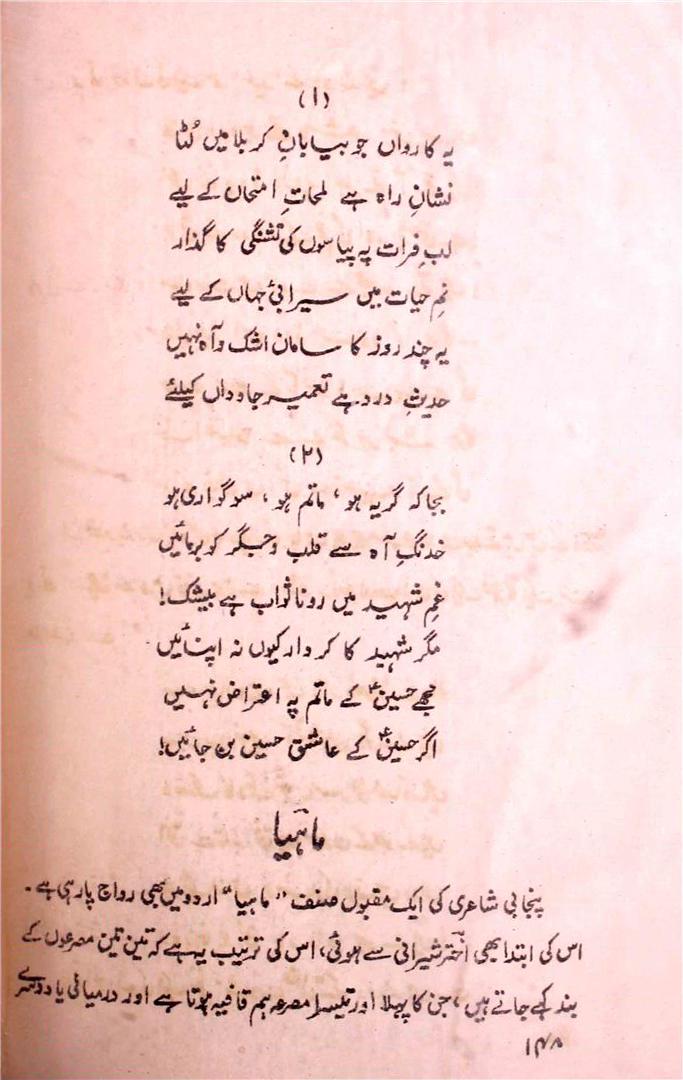 (۱)
یہ کارواں جو بیابانِ کربلا میں لُٹا
نشانِ راہ ہے لمحاتِ امتحاں کے لیے
لبِ فرات پہ پیاسوں کی تشنگی کا گذار
نمِ حیات میں سیرابیٔ جہاں کے لیے
یہ چند روز کا سامان اشک و آہ نہیں
حدیثِ درد ہے تعمیر جاوداں کیلئے
(۲)
بجا کہ گریہ ہو، ماتم ہو، سوگواری ہو
خدنگِ آہ سے قلب و جگر کو برمائیں
غمِ شہید میں رونا ثواب ہے بیشک!
مگر شہید کا کردار کیوں نہ اپنائیں
مجھے حسینؑ کے ماتم پہ اعتراض نہیں
اگر حسینؑ کے عاشق حسین بن جائیں!
ماہیا
پنجابی شاعری کی ایک مقبول صنف "ماہیا" اردو میں بھی رواج پا رہی ہے۔
اس کی ابتدا بھی اخترؔ شیرانی سے ہوئی، اس کی ترتیب یہ ہے کہ تین تین مصرعوں کے
بند کہے جاتے ہیں، جن کا پہلا اور تیسرا مصرعہ ہم قافیہ ہوتا ہے اور درمیانی یا دوسرے
۱۴۸